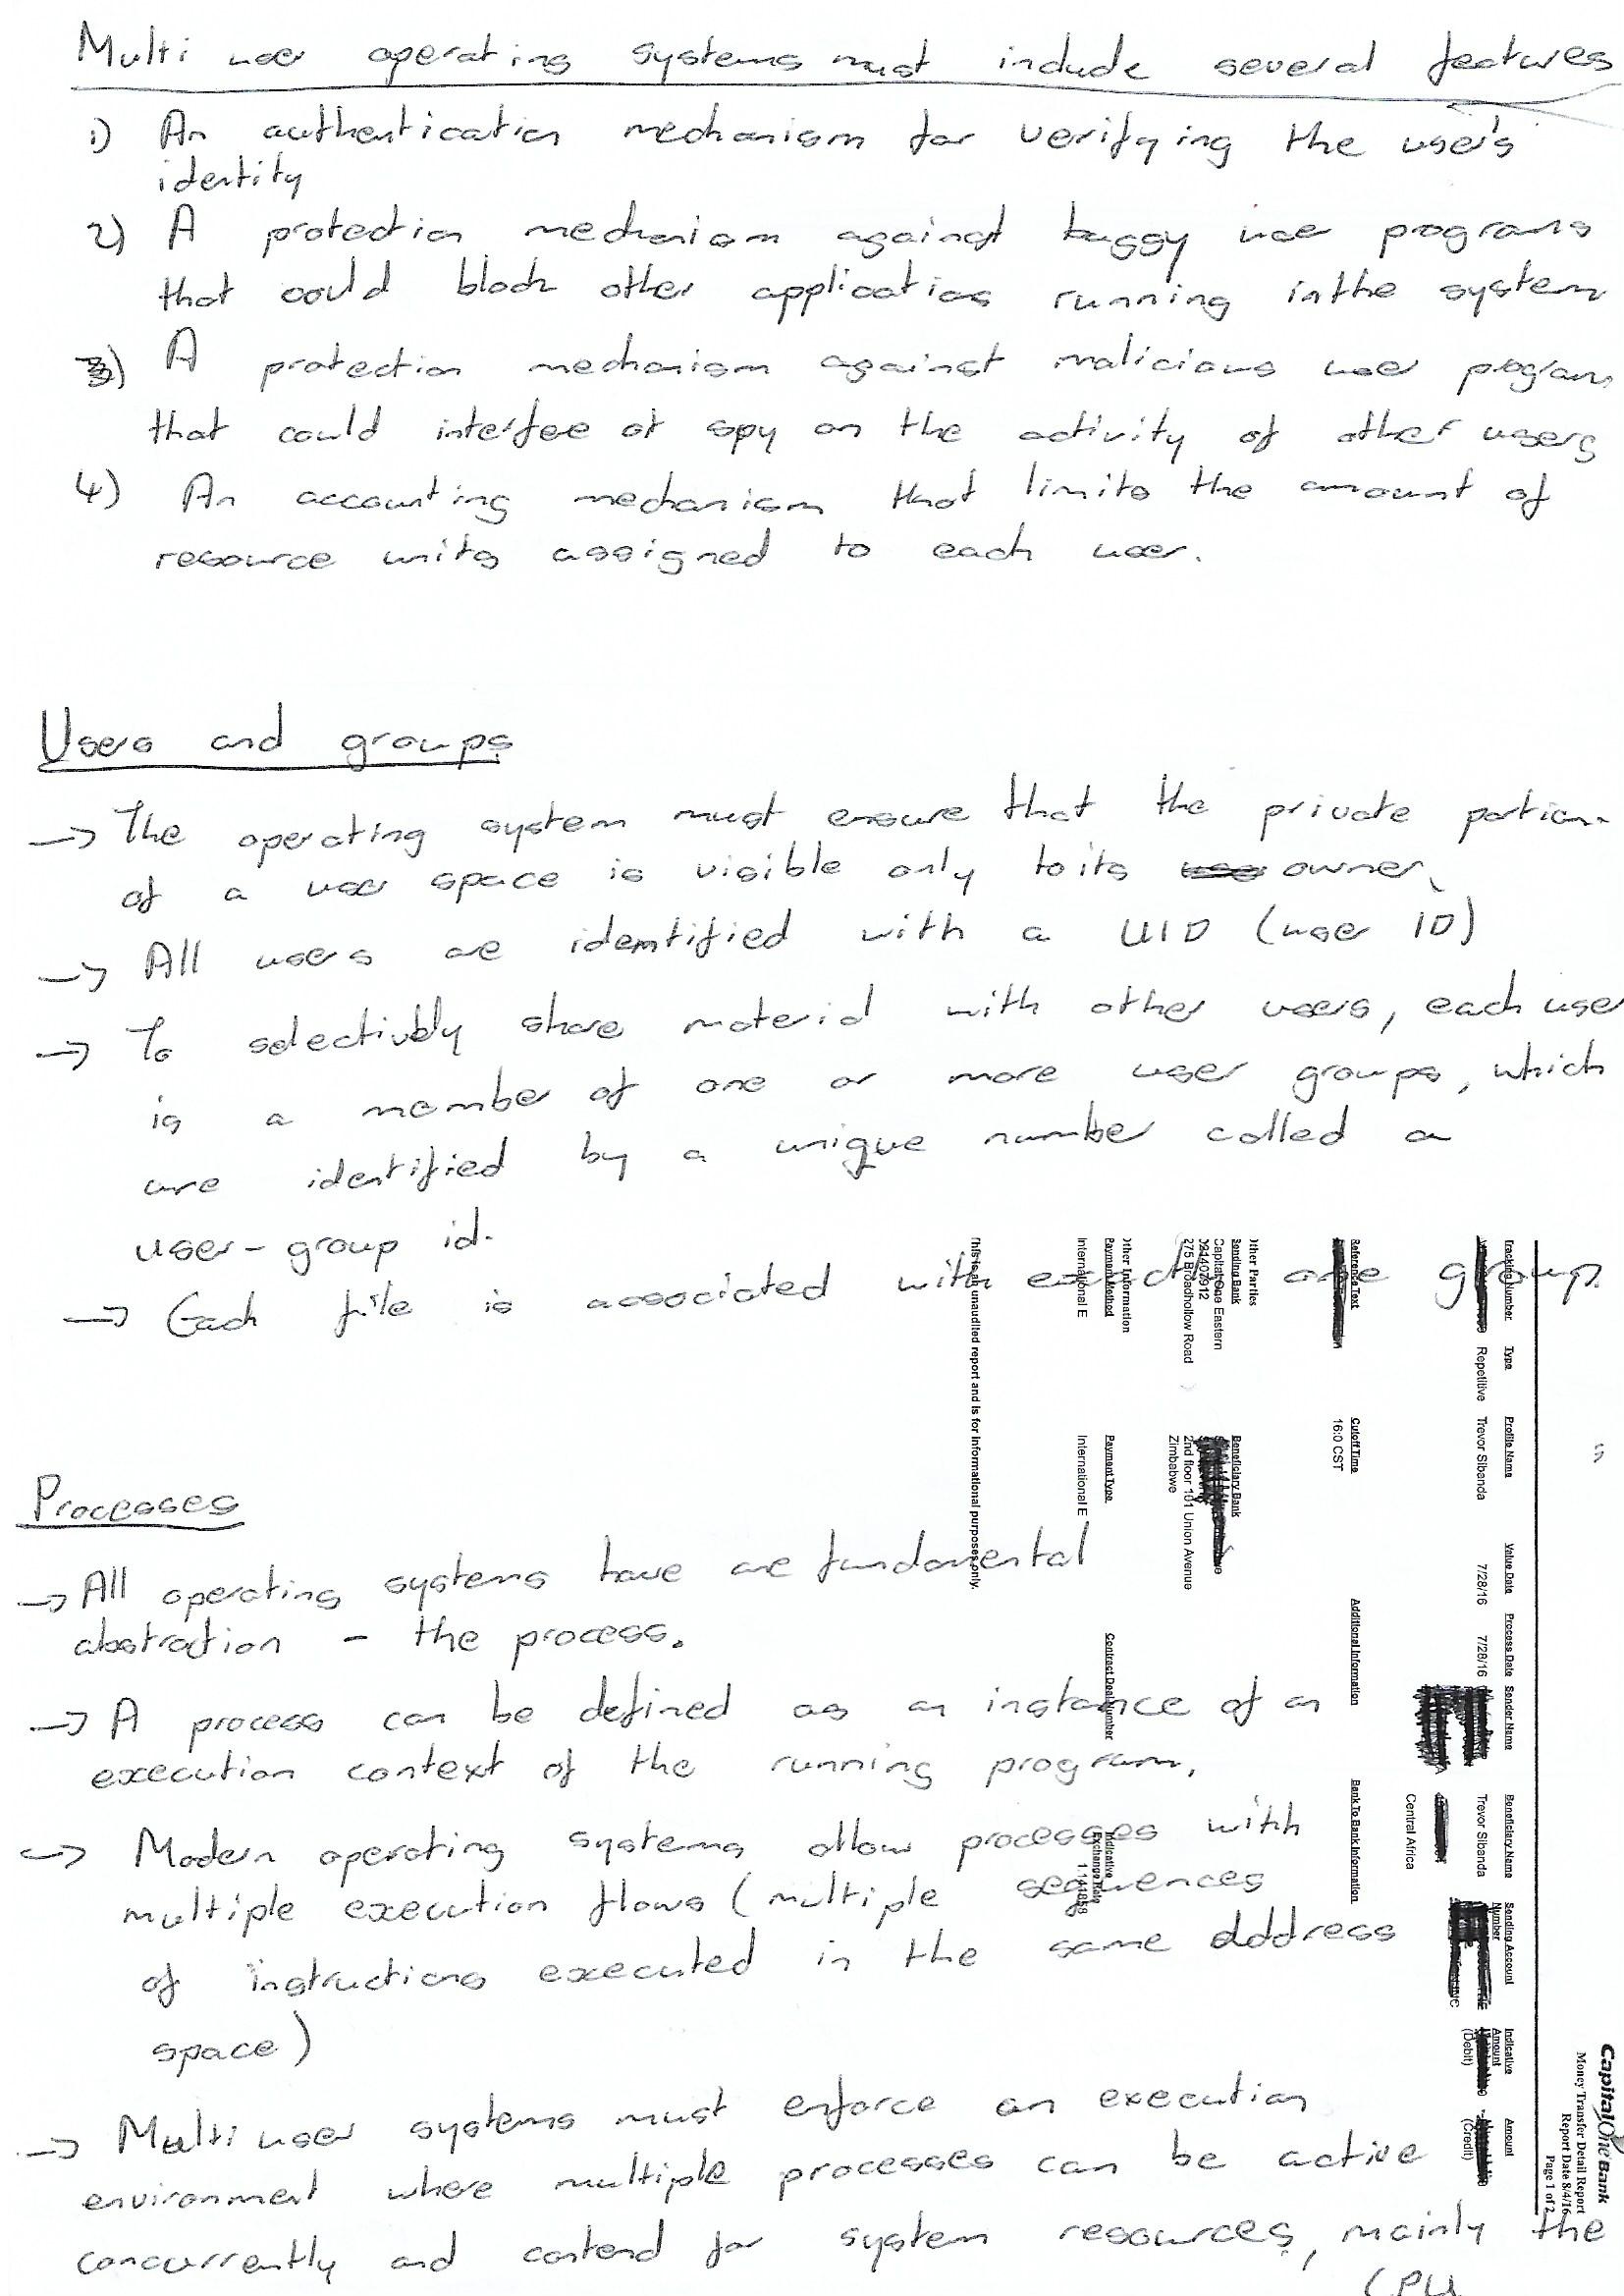 Multi user operating systems must include several features
1) An authentication mechanism for verifying the user's
identity
2) A protection mechanism against buggy user programs
that could block other applications running in the system
3) A protection mechanism against malicious user program
that could interfee or spy on the activity of other users
4) An accounting mechanism that limits the amount of
resource units assigned to each user.
Users and groups
→ The operating system must ensure that the private portion
of a user space is visible only to its owner.
→ All users are identified with a UID (user ID)
→ To selectively share material with other users, each user
is a member of one or more user groups, which
are identified by a unique number called a
user-group id.
→ Each file is associated with exactly one group.
Processes
→ All operating systems have one fundamental
abstraction - the process.
→ A process can be defined as an instance of an
execution context of the running program.
→ Modern operating systems allow processes with
multiple execution flows (multiple sequences
of instructions executed in the same address
space)
→ Multi user systems must enforce an execution
environment where multiple processes can be active
concurrently and contend for system resources, mainly the
CPU
CapitalOne Bank
Money Transfer Detail Report
Report Date 8/4/16
Page 1 of 2
Tracking Number Type Profile Name Value Date Process Date Sender Name Beneficiary Name Sending Account Number Indicative Amount (Debit) Amount (Credit)
Repetitive Trevor Sibanda 7/28/16 7/28/16 Trevor Sibanda
Central Africa
Reference Text Cutoff Time Additional Information Bank To Bank Information
16:0 CST
Other Parties
Sending Bank Beneficiary Bank
Capital One Eastern
275 Broadhollow Road 2nd floor 101 Union Avenue
Zimbabwe
Other Information
Payment Method Payment Type Contract Deal Number Indicative Exchange Rate
International E International E
This is an unaudited report and is for informational purposes only.